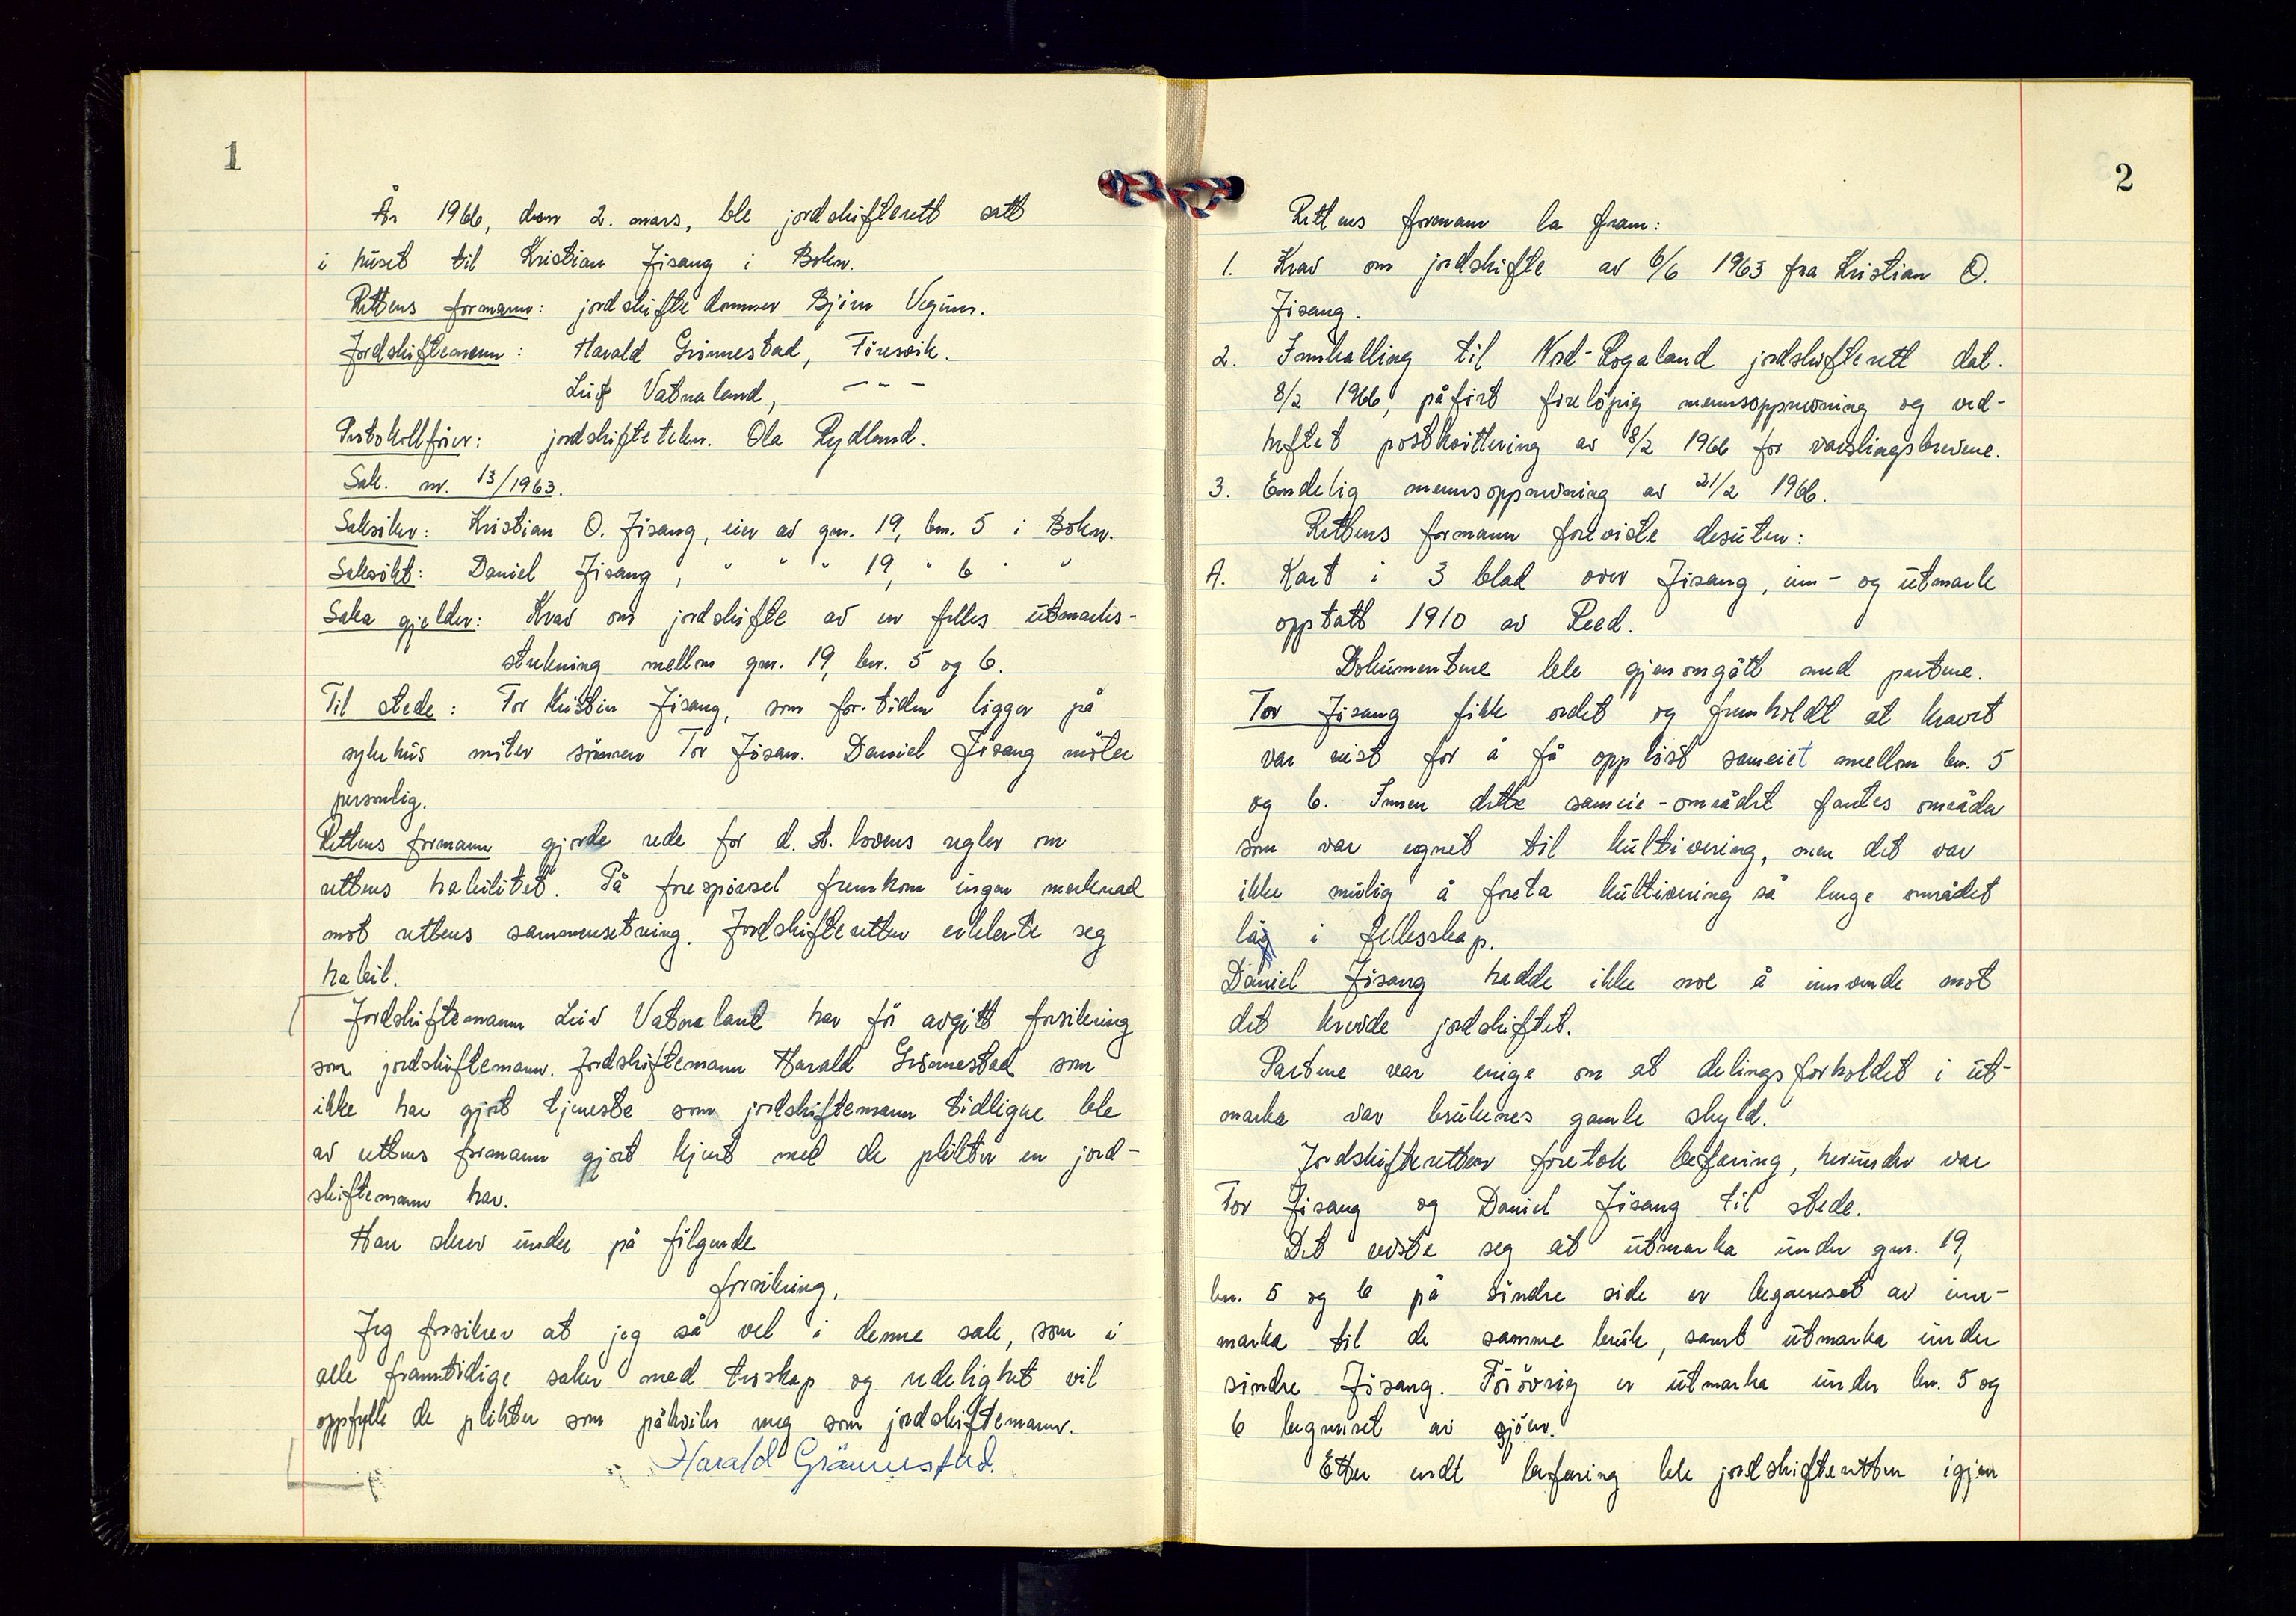 1
År 1966, den 2. mars, ble jordskifterett satt
i huset til Kristian Jøsang i Bokn.
Rettens formann: jordskiftedommer Bjørn Vegum.
Jordskiftemenn: Harald Grønnestad, Føresvik.
Leif Vatnaland, — " —
Protokollfører: jordskiftetekn. Ola Rydland.
Sak. nr. 13/1963.
Saksøker: Kristian O. Jøsang, eier av gnr. 19, bnr. 5 i Bokn.
Saksøkt: Daniel Jøsang, " " " 19, " 6 " "
Saka gjelder: Krav om jordskifte av en felles utmarks-
strekning mellom gnr. 19, bnr. 5 og 6.
Til stede: For Kristian Jøsang, som for tiden ligger på
sykehus møter sønnen Tor Jøsan. Daniel Jøsang møter
personlig.
Rettens formann gjorde rede for d. st. lovens regler om
rettens habilitet. På forespørsel fremkom ingen merknad
mot rettens sammensetning. Jordskifteretten erklærte seg
habil.
Jordskiftemann Leiv Vatnaland har før avgitt forsikring
som jordskiftemann. Jordskiftemann Harald Grønnestad som
ikke har gjort tjeneste som jordskiftemann tidligere ble
av rettens formann gjort kjent med de plikter en jord-
skiftemann har.
Han skrev under på følgende
forsikring.
Jeg forsikrer at jeg så vel i denne sak, som i
alle framtidige saker med troskap og redelighet vil
oppfylle de plikter som påhviler meg som jordskiftemann.
Harald Grønnestad.
2
Rettens formann la fram:
1. Krav om jordskifte av 6/6 1963 fra Kristian O.
Jøsang.
2. Innkalling til Nord-Rogaland jordskifterett dat.
8/2 1966, påført foreløpig mannsoppnevning og ved-
heftet postkvittering av 8/2 1966 for varslingsbrevene.
3. Endelig mannsoppnevning av 21/2 1966.
Rettens formann foreviste desuten:
A. Kart i 3 blad over Jøsang, inn- og utmark
opptatt 1910 av Reed.
Dokumentene ble gjenomgått med partene.
Tor Jøsang fikk ordet og fremholdt at kravet
var reist for å få oppløst sameiet mellom bnr. 5
og 6. Innen dette sameie-området fantes områder
som var egnet til kultivering, men det var
ikke mulig å foreta kultivering så lenge området
låg i fellesskap.
Daniel Jøsang hadde ikke noe å innvende mot
det krevde jordskiftet.
Partene var enige om at delingsforholdet i ut-
marka var brukenes gamle skyld.
Jordskifteretten foretok befaring, herunder var
Tor Jøsang og Daniel Jøsang til stede.
Det viste seg at utmarka under gnr. 19,
bnr. 5 og 6 på søndre side er begrenset av inn-
marka til de samme bruk, samt utmarka under
søndre Jøsang. Forøvrig er utmarka under bnr. 5 og
6 begrenset av sjøen.
Etter endt befaring ble jordskifteretten igjen